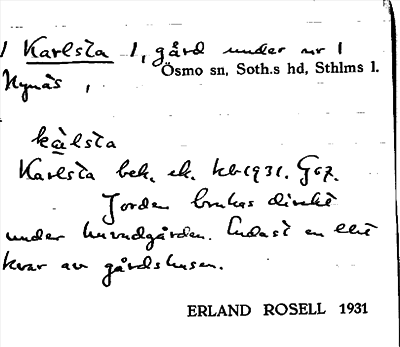 1 Karlsta 1, gård under nr 1
Ösmo sn, Soth.s hd, Sthlms l.
Nynäs,
kàlsta
Karlsta bek. ek. kb 1931. Goz.
Jorden brukas direkt
under huvudgården. Endast en ett
kvar av gårdshusen.
ERLAND ROSELL 1931